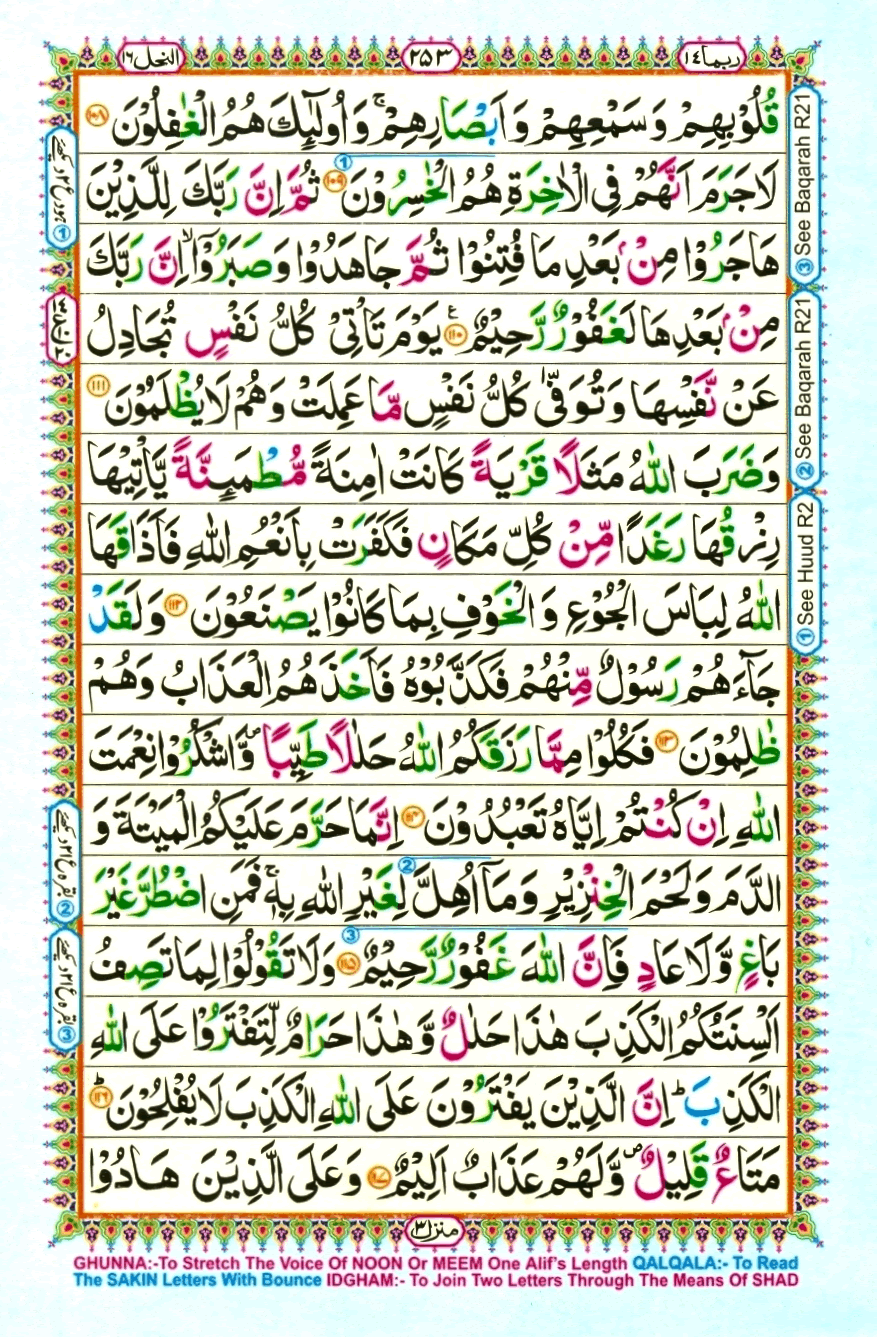 ربما ١٤
٢٥٣
النحل ١٦
قُلُوْبِهِمْ وَ سَمْعِهِمْ وَ اَبْصَارِهِمْ ۚ وَ اُولٰٓئِكَ هُمُ الْغٰفِلُوْنَ ١٠٨
لَا جَرَمَ اَنَّهُمْ فِى الْاٰخِرَةِ هُمُ الْخٰسِرُوْنَ ١٠٩ ثُمَّ اِنَّ رَبَّكَ لِلَّذِيْنَ
هَاجَرُوْا مِنْۢ بَعْدِ مَا فُتِنُوْا ثُمَّ جَاهَدُوْا وَ صَبَرُوْٓا ۙ اِنَّ رَبَّكَ
مِنْۢ بَعْدِهَا لَغَفُوْرٌ رَّحِيْمٌ ١١٠ يَوْمَ تَاْتِىْ كُلُّ نَفْسٍ تُجَادِلُ
عَنْ نَّفْسِهَا وَ تُوَفّٰى كُلُّ نَفْسٍ مَّا عَمِلَتْ وَ هُمْ لَا يُظْلَمُوْنَ ١١١
وَ ضَرَبَ اللّٰهُ مَثَلًا قَرْيَةً كَانَتْ اٰمِنَةً مُّطْمَئِنَّةً يَّاْتِيْهَا
رِزْقُهَا رَغَدًا مِّنْ كُلِّ مَكَانٍ فَكَفَرَتْ بِاَنْعُمِ اللّٰهِ فَاَذَاقَهَا
اللّٰهُ لِبَاسَ الْجُوْعِ وَ الْخَوْفِ بِمَا كَانُوْا يَصْنَعُوْنَ ١١٢ وَ لَقَدْ
جَآءَهُمْ رَسُوْلٌ مِّنْهُمْ فَكَذَّبُوْهُ فَاَخَذَهُمُ الْعَذَابُ وَ هُمْ
ظٰلِمُوْنَ ١١٣ فَكُلُوْا مِمَّا رَزَقَكُمُ اللّٰهُ حَلٰلًا طَيِّبًا ۪ وَّ اشْكُرُوْا نِعْمَتَ
اللّٰهِ اِنْ كُنْتُمْ اِيَّاهُ تَعْبُدُوْنَ ١١٤ اِنَّمَا حَرَّمَ عَلَيْكُمُ الْمَيْتَةَ وَ
الدَّمَ وَ لَحْمَ الْخِنْزِيْرِ وَ مَاۤ اُهِلَّ لِغَيْرِ اللّٰهِ بِهٖ ۚ فَمَنِ اضْطُرَّ غَيْرَ
بَاغٍ وَّ لَا عَادٍ فَاِنَّ اللّٰهَ غَفُوْرٌ رَّحِيْمٌ ١١٥ وَ لَا تَقُوْلُوْا لِمَا تَصِفُ
اَلْسِنَتُكُمُ الْكَذِبَ هٰذَا حَلٰلٌ وَّ هٰذَا حَرَامٌ لِّتَفْتَرُوْا عَلَى اللّٰهِ
الْكَذِبَ ؕ اِنَّ الَّذِيْنَ يَفْتَرُوْنَ عَلَى اللّٰهِ الْكَذِبَ لَا يُفْلِحُوْنَ ؕ
مَتَاعٌ قَلِيْلٌ ۪ وَّ لَهُمْ عَذَابٌ اَلِيْمٌ وَ عَلَى الَّذِيْنَ هَادُوْا
③ See Baqarah R21
② See Baqarah R21
① See Huud R2
منزل ٣
GHUNNA:-To Stretch The Voice Of NOON Or MEEM One Alif's Length QALQALA:- To Read
The SAKIN Letters With Bounce IDGHAM:- To Join Two Letters Through The Means Of SHAD